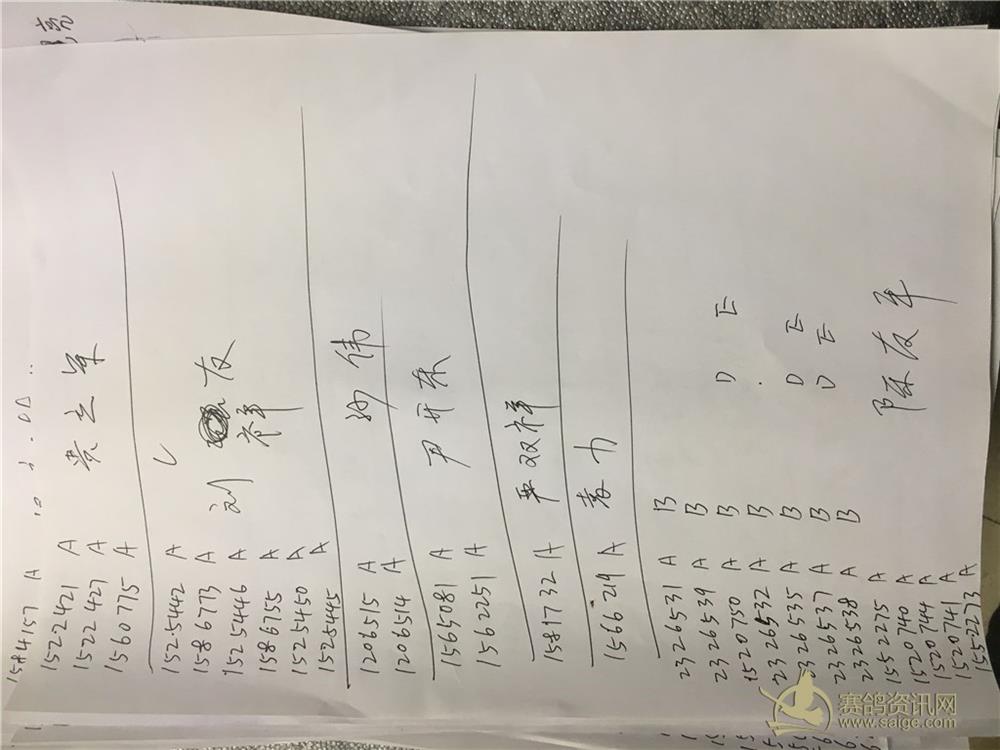 1584157 A
1522421 A
1522427 A
1560775 A
1525442 A
1586773 A
1525446 A
1586755 A
1525450 A
1525445 A
刘 友祥
1206515 A
1206514 A
伟
1565081 A
1562251 A
尹开东
1581732 A
严双祥
1566629 A
2326531 A B
2326539 A B
1520750 A B D E
2326532 A B
2326535 A B D E
2326537 A B D E
2326538 A B
1552275 A
1520740 A
1520744 A
1520741 A
1552273 A
陈友军
赛鸽资讯网
www.saige.com